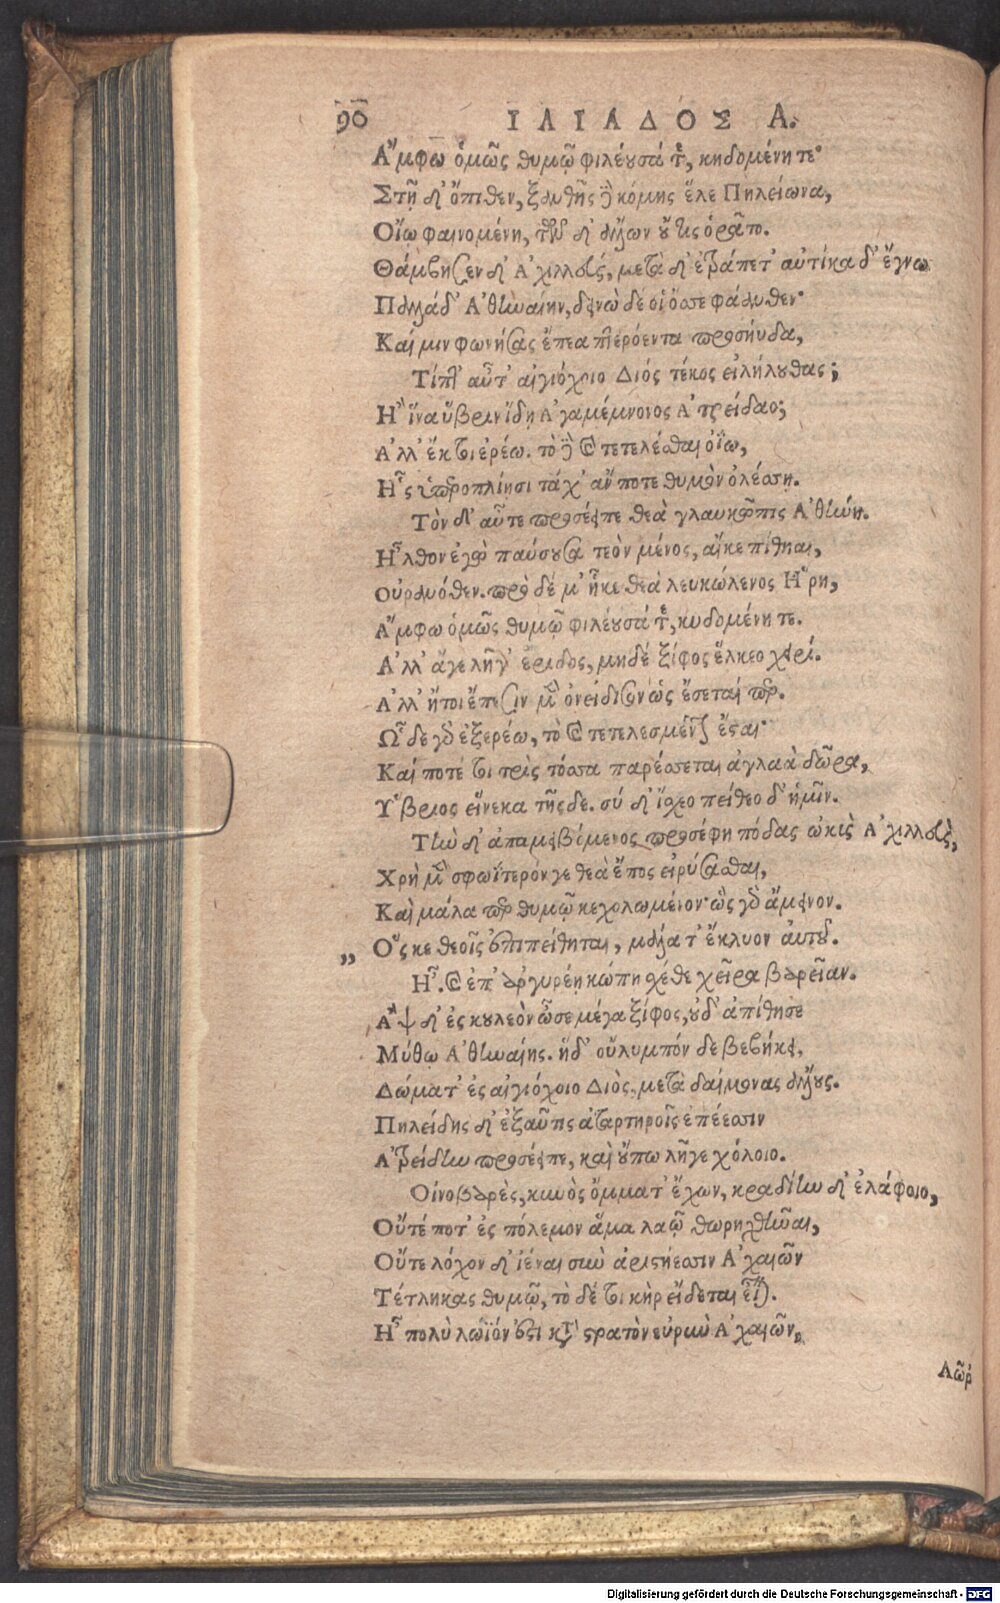 90 ΙΛΙΑΔΟΣ Α.
Ἄμφω ὁμῶς θυμῷ φιλέουσά τε, κηδομένη τε·
Στῆ δ' ὄπιθεν, ξανθῆς δὲ κόμης ἕλε Πηλείωνα,
Οἴῳ φαινομένη, τῶν δ' ἄλλων οὔτις ὁρᾶτο.
Θάμβησεν δ' Ἀχιλλεύς, μετὰ δ' ἐτράπετ' αὐτίκα δ' ἔγνω
Παλλάδ' Ἀθηναίην, δεινὼ δέ οἱ ὄσσε φάανθεν·
Καί μιν φωνήσας ἔπεα πτερόεντα προσηύδα,
Τίπτ' αὖτ' αἰγιόχοιο Διός τέκος εἰλήλουθας;
Ἢ ἵνα ὕβριν ἴδῃ Ἀγαμέμνονος Ἀτρείδαο;
Ἀλλ' ἔκ τοι ἐρέω. τὸ δὲ καὶ τετελέσθαι ὀΐω,
Ἧς ὑπεροπλίῃσι τάχ' ἄν ποτε θυμὸν ὀλέσσῃ.
Τὸν δ' αὖτε προσέειπε θεὰ γλαυκῶπις Ἀθήνη.
Ἦλθον ἐγὼ παύσουσα τεὸν μένος, αἴκε πίθηαι,
Οὐρανόθεν. πρὸ δέ μ' ἧκε θεὰ λευκώλενος Ἥρη,
Ἄμφω ὁμῶς θυμῷ φιλέουσά τε, κυδομένη τε.
Ἀλλ' ἄγε λῆγ' ἔριδος, μηδέ ξίφος ἕλκεο χειρί.
Ἀλλ' ἤτοι ἔπεσιν μὲν ὀνείδισον ὡς ἔσεταί περ.
Ὧδε γὰρ ἐξερέω, τὸ καὶ τετελεσμένον ἔσται·
Καί ποτέ τοι τρὶς τόσσα παρέσσεται ἀγλαὰ δῶρα,
Ὕβριος εἵνεκα τῆςδε. σύ δ' ἴσχεο πείθεο δ' ἡμῖν.
Τὴν δ' ἀπαμειβόμενος προσέφη πόδας ὠκὺς Ἀχιλλεὺς,
Χρὴ μὲν σφωΐτερόν γε θεὰ ἔπος εἰρύσασθαι,
Καὶ μάλα περ θυμῷ κεχολωμένον· ὣς γὰρ ἄμεινον.
„ Ὅς κε θεοῖς ἐπιπείθηται, μάλα τ' ἔκλυον αὐτοῦ.
Ἦ. καὶ ἐπ' ἀργυρέῃ κώπῃ σχέθε χεῖρα βαρεῖαν.
Ἂψ δ' ἐς κουλεὸν ὦσε μέγα ξίφος, οὐδ' ἀπίθησε
Μύθῳ Ἀθηναίης. ἥδ' οὔλυμπόν δε βεβήκει,
Δώματ' ἐς αἰγιόχοιο Διὸς, μετὰ δαίμονας ἄλλους.
Πηλείδης δ' ἐξαῦτις ἀταρτηροῖς ἐπέεσσιν
Ἀτρείδην προσέειπε, καὶ οὔπω λῆγε χόλοιο.
Οἰνοβαρὲς, κυνὸς ὄμματ' ἔχων, κραδίην δ' ἐλάφοιο,
Οὔτέ ποτ' ἐς πόλεμον ἅμα λαῷ θωρηχθῆναι,
Οὔτε λόχον δ' ἰέναι σὺν ἀριστήεσσιν Ἀχαιῶν
Τέτληκας θυμῷ, τὸ δέ τοι κὴρ εἴδεται εἶναι.
Ἦ πολὺ λώϊόν ἐστι κατὰ στρατὸν εὐρὺν Ἀχαιῶν,
Δῶρ
Digitalisierung gefördert durch die Deutsche Forschungsgemeinschaft - DFG